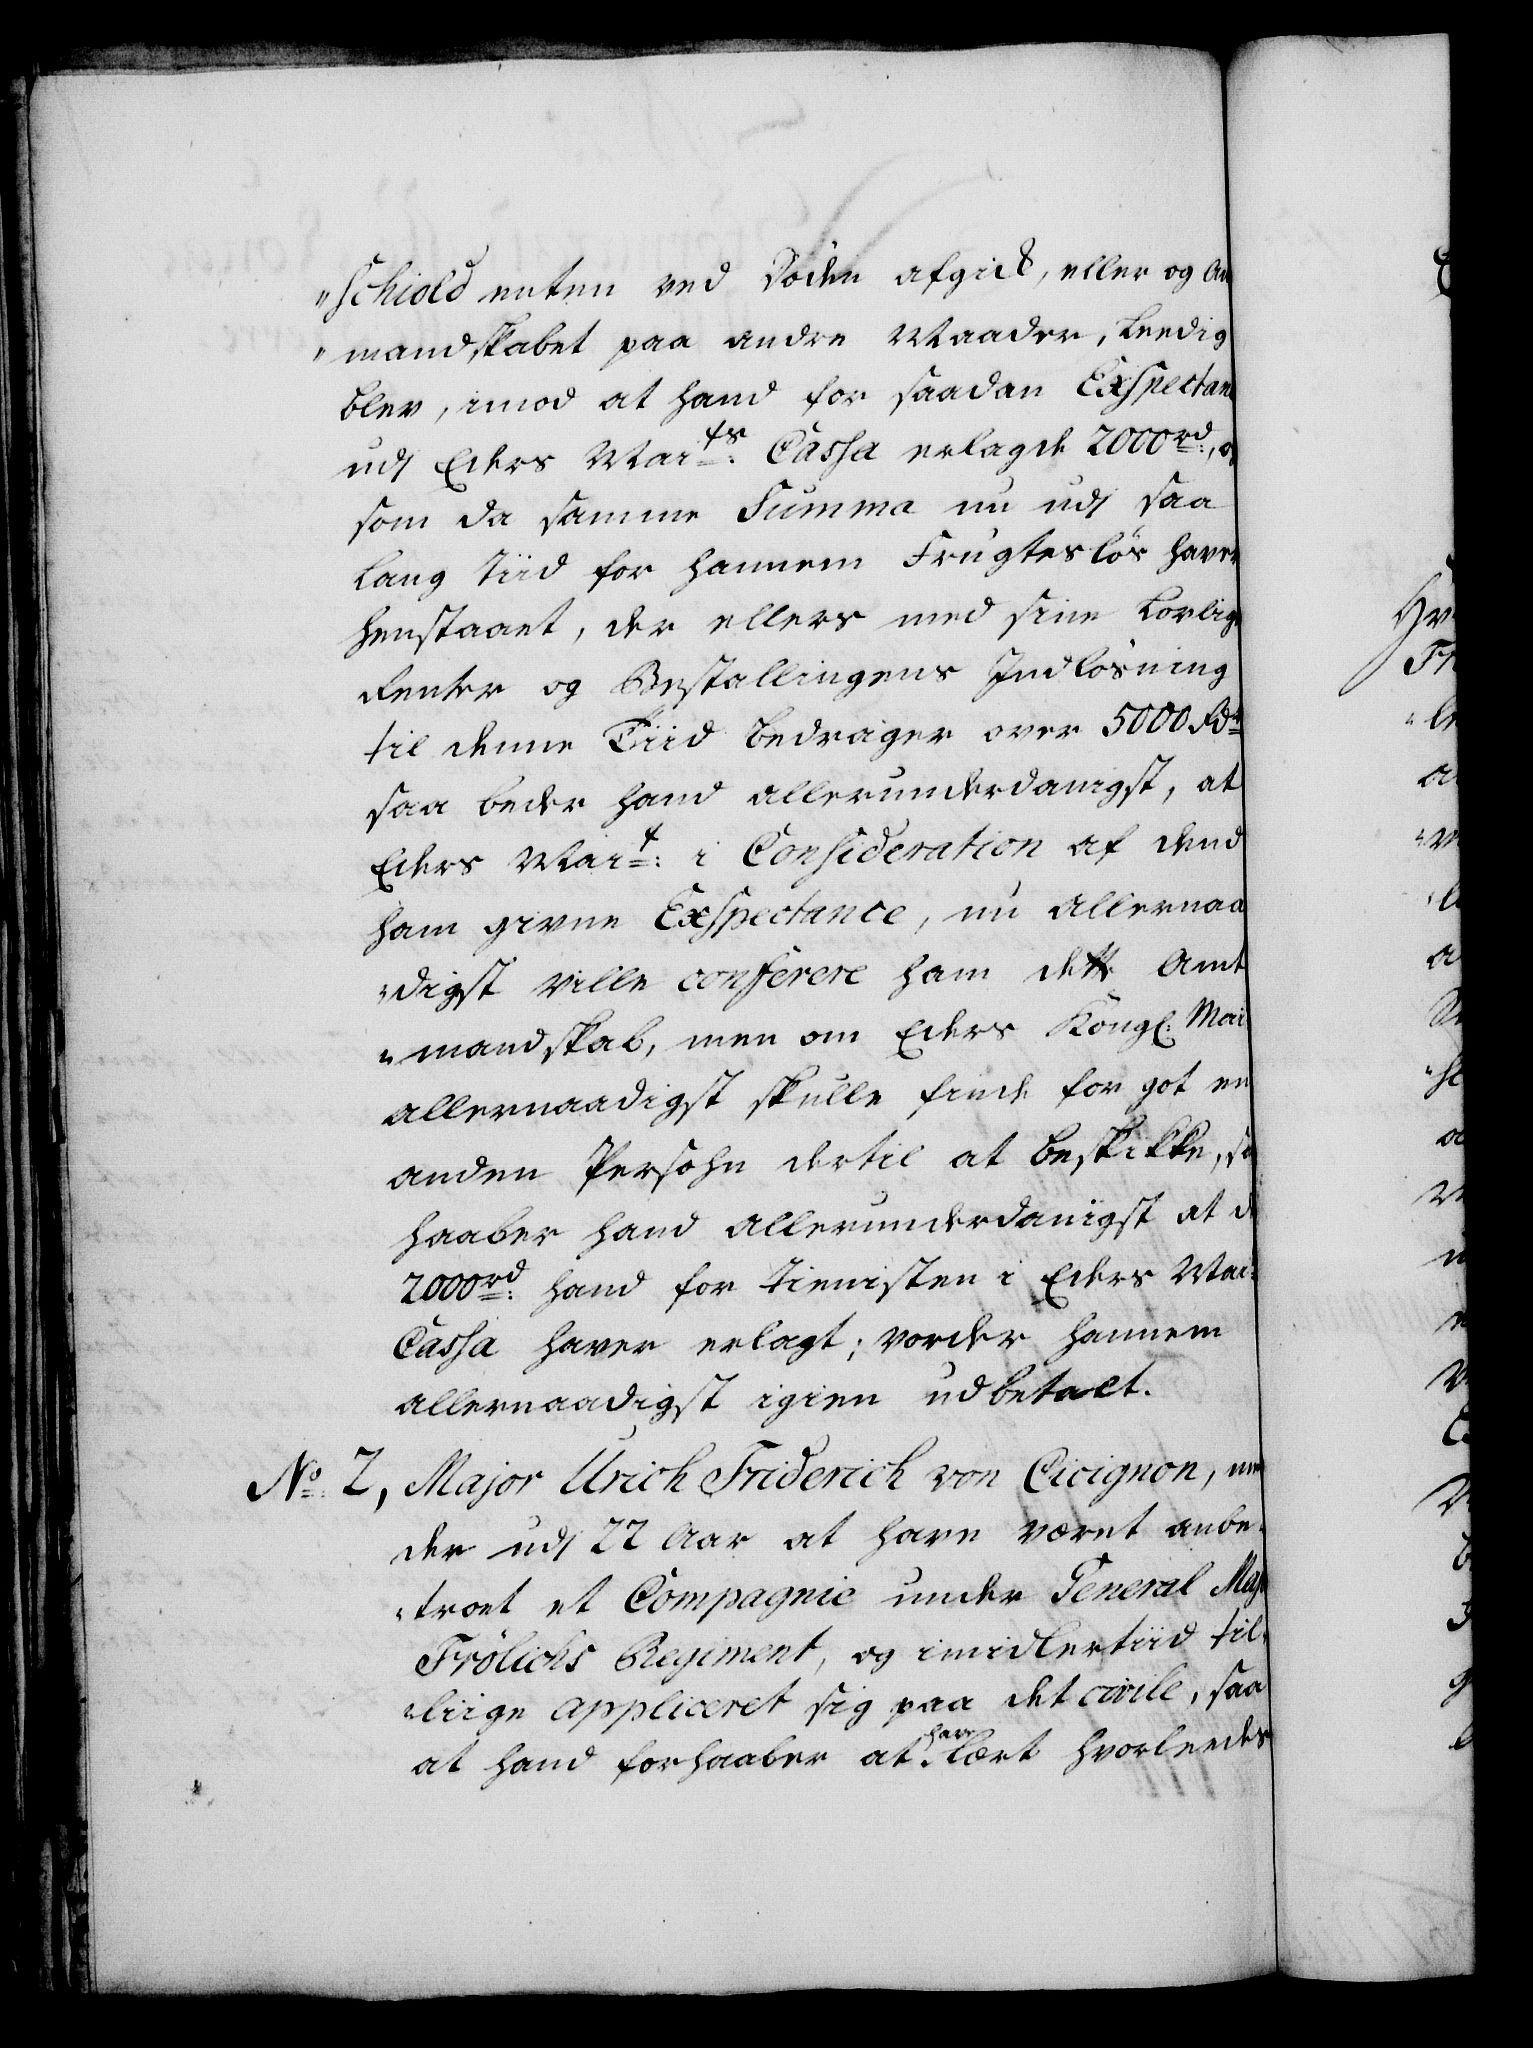 "schiold enten ved Döden afgick, eller og
"mandskabet paa andre Maader, Leedig
blev, imod at hand for saadan Exspectan
udj Eders Maits: Cassa erlagde 2000rd:,
som da samme Summa nu udj saa
lang Tiid for hannem Frugteslös haver
henstaaet, der ellers med sine Lovlige
Renter og Bestallingens Indlösning
til denne Tiid bedrager over 5000 Rdr
saa beder hand allerunderdanigst, at
Eders Mait: i Consideration af dend
ham givne Exspectance, nu allernaa
"digst ville conferere ham dette Amt
"mandskab, men om Eders Kongl: Mai
allernaadigst skulle finde for got en
anden Persohn dertil at beskikke, sa
haaber hand allerunderdanigst at d
2000rd: hand for Tienisten i Eders Mai:
Cassa haver erlagt; vorder hannem
allernaadigst igien udbetalt.
No: 2, Major Urich Friderich von Cicignon,
der udj 22 Aar at have været anbe-
"troet et Compagnie under General Maj
Frölichs Regiment, og imidlertiid til-
"liige appliceret sig paa det civile, saa
at hand forhaaber at have lært hvorledes